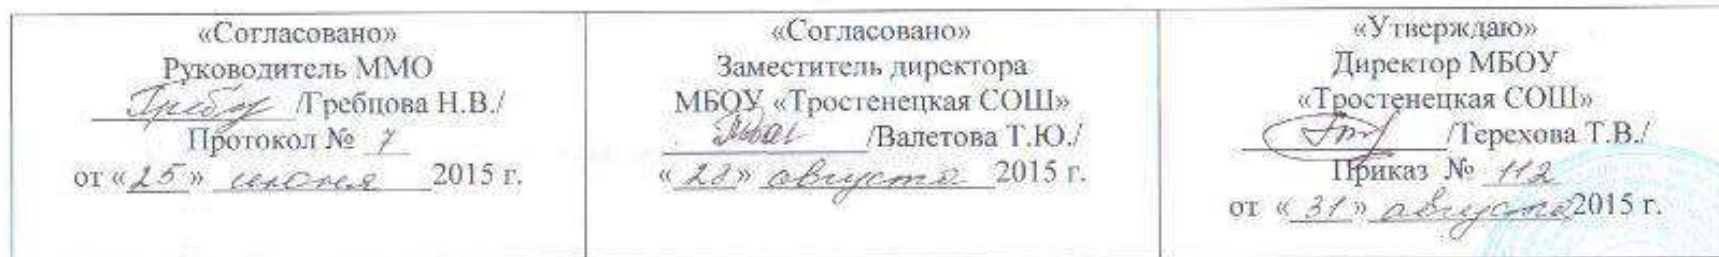 «Согласовано»
Руководитель ММО
/Гребцова Н.В./
Протокол № 7
от «25» июня 2015 г.
«Согласовано»
Заместитель директора
МБОУ «Тростенецкая СОШ»
/Валетова Т.Ю./
«28» августа 2015 г.
«Утверждаю»
Директор МБОУ
«Тростенецкая СОШ»
/Терехова Т.В./
Приказ № 112
от «31» августа 2015 г.